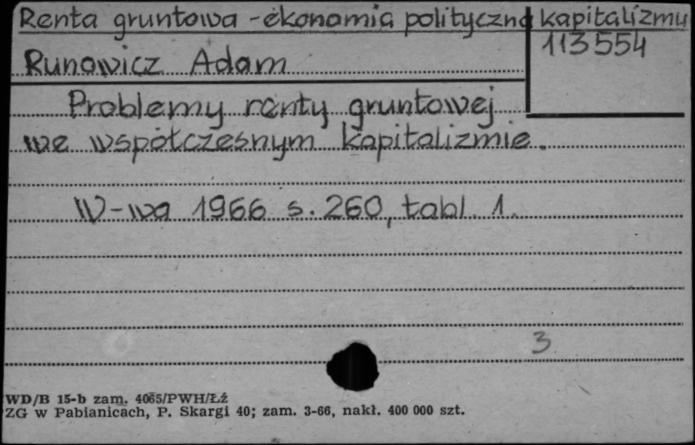 Renta gruntowa - ekonomia polityczna kapitalizmu
113554
Runowicz Adam
Problemy renty gruntowej
we współczesnym kapitalizmie.
W-wa 1966 s. 260, tabl. 1.
3
WD/B 15-b zam. 4065/PWH/Łź
ZG w Pabianicach, P. Skargi 40; zam. 3-66, nakł. 400 000 szt.